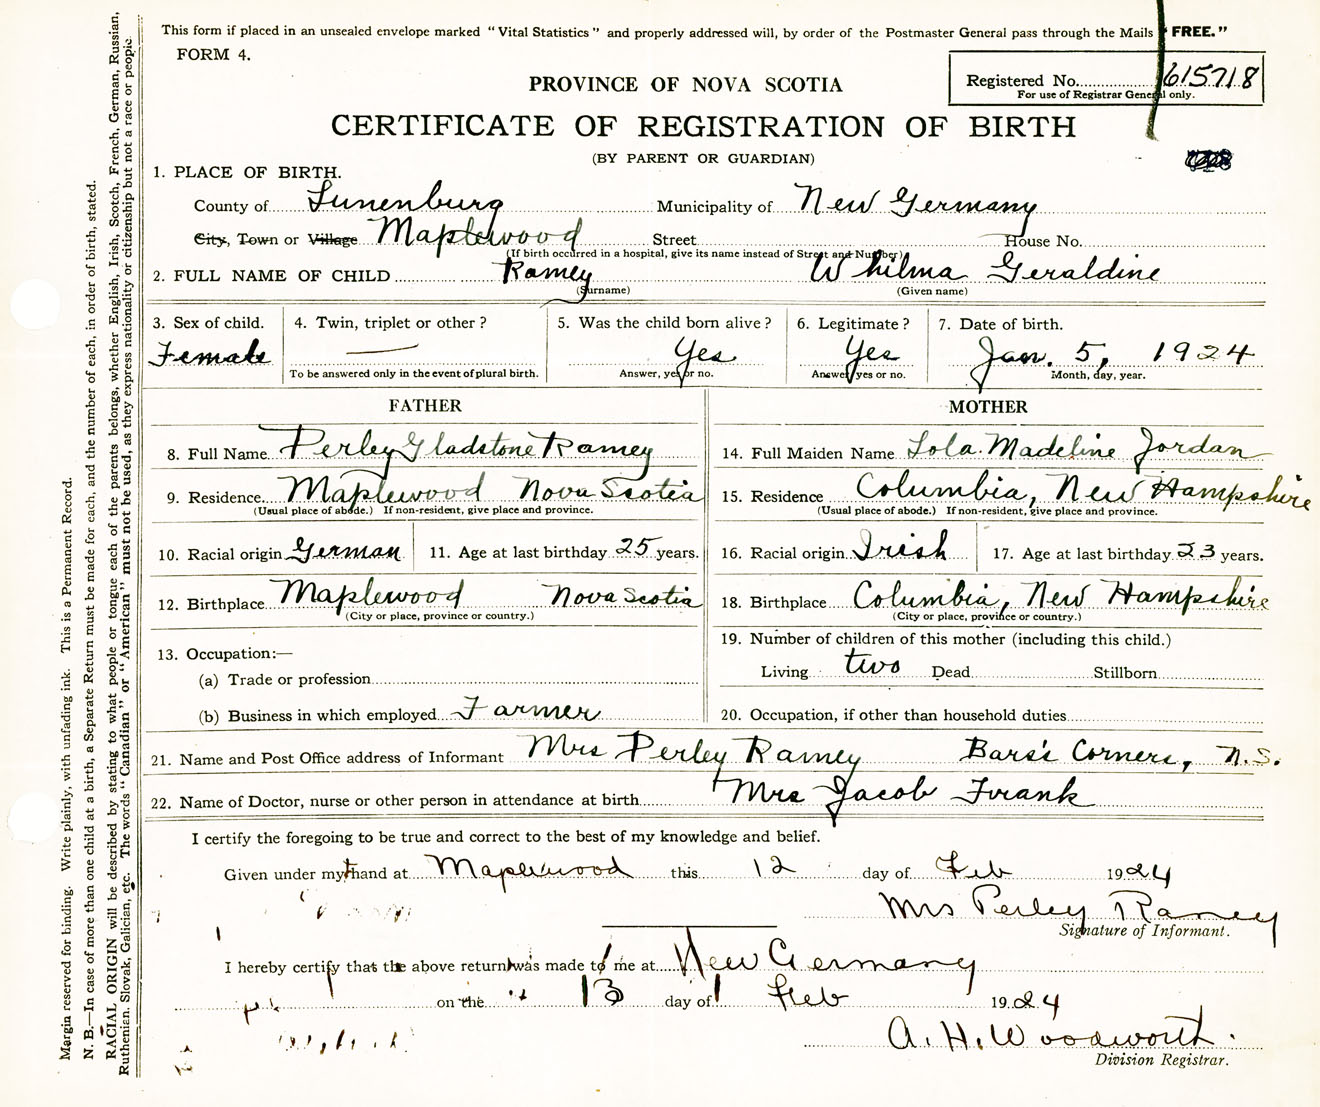 This form if placed in an unsealed envelope marked "Vital Statistics" and properly addressed will, by order of the Postmaster General pass through the Mails "FREE."
FORM 4.
PROVINCE OF NOVA SCOTIA
Registered No. 615718
For use of Registrar General only.
CERTIFICATE OF REGISTRATION OF BIRTH
(BY PARENT OR GUARDIAN)
1. PLACE OF BIRTH.
County of Lunenburg Municipality of New Germany
City, Town or Village Maplewood Street House No.
(If birth occurred in a hospital, give its name instead of Street and Number)
2. FULL NAME OF CHILD Ramey Whilma Geraldine
(Surname) (Given name)
3. Sex of child. 4. Twin, triplet or other? 5. Was the child born alive? 6. Legitimate? 7. Date of birth.
Female — Yes Yes Jan. 5, 1924
To be answered only in the event of plural birth. Answer, yes or no. Answer, yes or no. Month, day, year.
FATHER MOTHER
8. Full Name Perley Gladstone Ramey 14. Full Maiden Name Lola Madeline Jordan
9. Residence Maplewood Nova Scotia 15. Residence Columbia, New Hampshire
(Usual place of abode.) If non-resident, give place and province. (Usual place of abode.) If non-resident, give place and province.
10. Racial origin German 11. Age at last birthday 25 years. 16. Racial origin Irish 17. Age at last birthday 23 years.
12. Birthplace Maplewood Nova Scotia 18. Birthplace Columbia, New Hampshire
(City or place, province or country.) (City or place, province or country.)
13. Occupation:— 19. Number of children of this mother (including this child.)
(a) Trade or profession Living two Dead Stillborn
(b) Business in which employed Farmer 20. Occupation, if other than household duties
21. Name and Post Office address of Informant Mrs Perley Ramey Bars's Corners, N.S.
22. Name of Doctor, nurse or other person in attendance at birth Mrs Jacob Frank
I certify the foregoing to be true and correct to the best of my knowledge and belief.
Given under my hand at Maplewood this 12 day of Feb 1924
Mrs Perley Ramey
Signature of Informant.
I hereby certify that the above return was made to me at New Germany
on the 13 day of Feb 1924
A. H. Woodworth.
Division Registrar.
Margin reserved for binding. Write plainly, with unfading ink. This is a Permanent Record.
N. B.—In case of more than one child at a birth, a Separate Return must be made for each, and the number of each, in order of birth, stated.
RACIAL ORIGIN will be described by stating to what people or tongue each of the parents belongs, whether English, Irish, Scotch, French, German, Russian,
Ruthenian, Slovak, Galician, etc. The words "Canadian" or "American" must not be used, as they express nationality or citizenship but not a race or people.